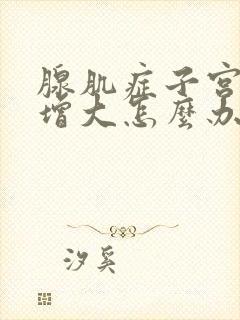 腺肌症子宫
增大怎麼办
汐奚